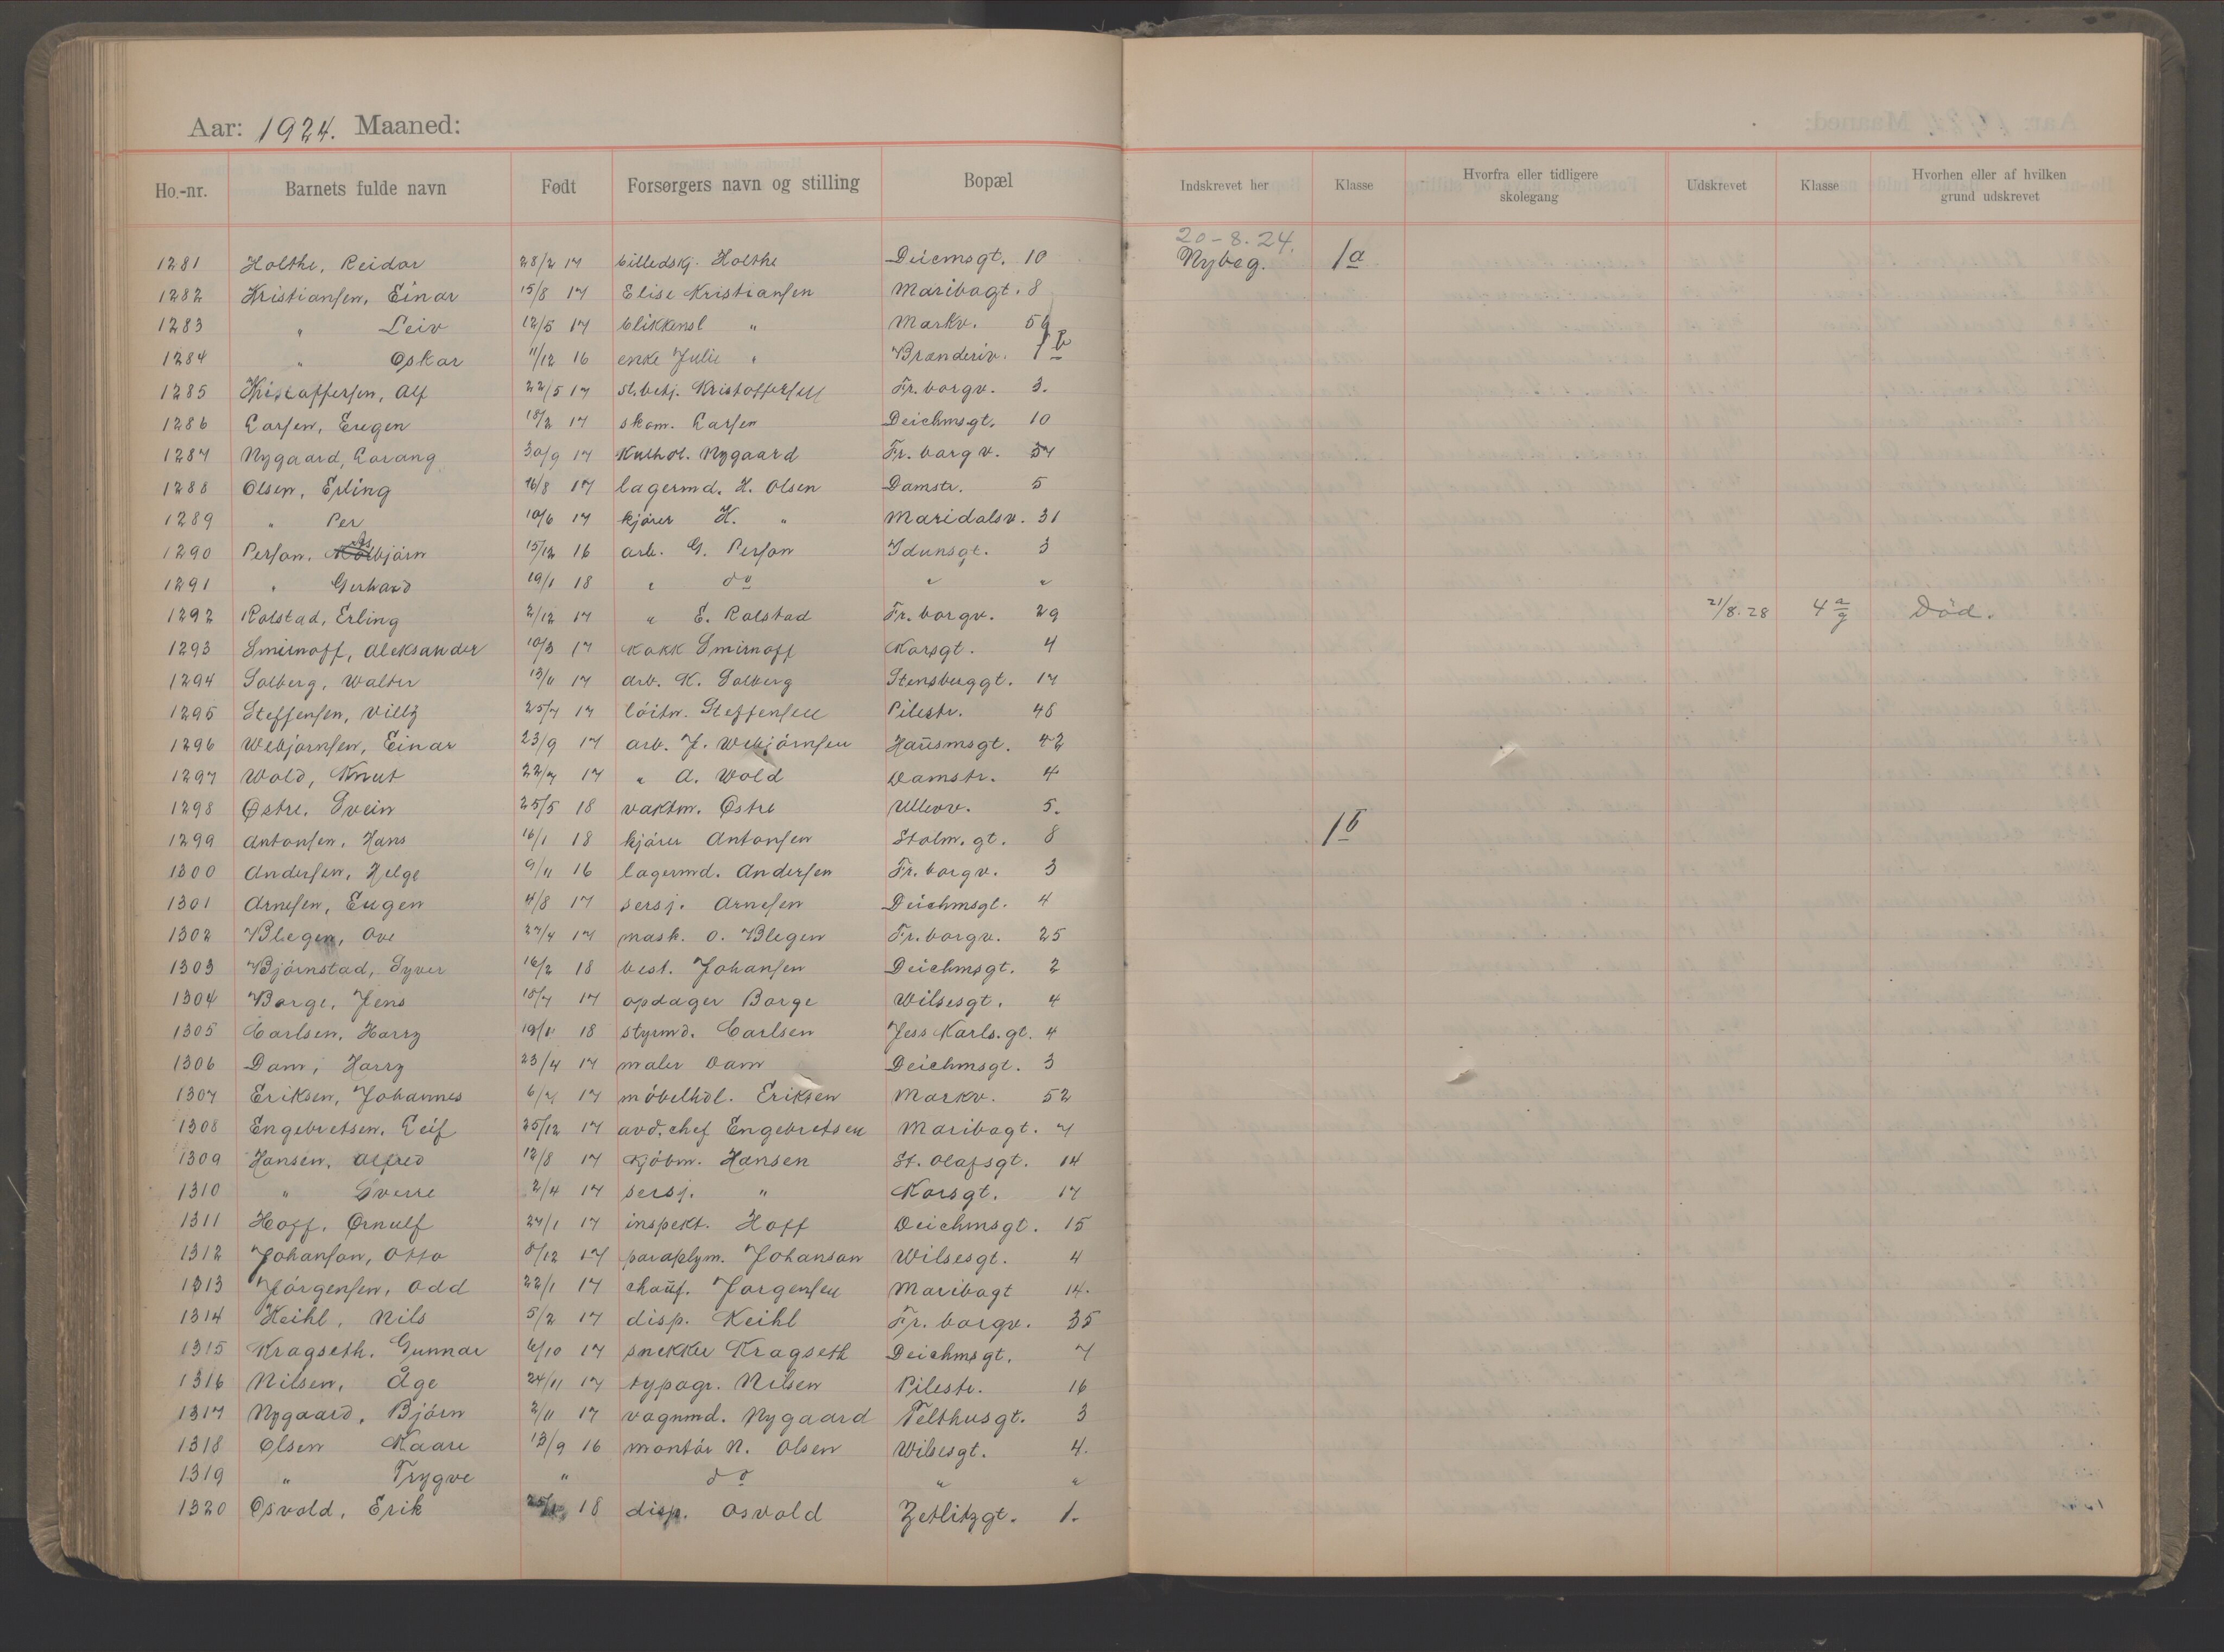 Aar: 1924. Maaned:
Ho.-nr. Barnets fulde navn Født Forsørgers navn og stilling Bopæl Indskrevet her Klasse Hvorfra eller tidligere skolegang Udskrevet Klasse Hvorhen eller af hvilken grund udskrevet
20-8.24.
1281 Holthe, Reidar 28/2 17 billedskj. Holthe Deicmsgt. 10 Nybeg. 1a
1282 Kristiansen, Einar 15/8 17 Elise Kristiansen Maribogt. 8
1283 " Leiv 12/5 17 blikkensl " Markv. 56
1284 " Oskar 11/12 16 enke Julie " Brenneriv. 1 b
1285 Kristoffersen, Alf 22/5 17 st.betj. Kristoffersen Fr. borgv. 3.
1286 Larsen, Eugen 18/2 17 skom. Larsen Deichmsgt. 10
1287 Nygaard, Lorang 30/9 17 Kulhdl. Nygaard Fr. borgv. 37
1288 Olsen, Erling 16/8 17 lagermd. H. Olsen Damstr. 5
1289 " Per 10/6 17 kjører K. " Maridalsv. 31
1290 Person, Asbjørn 15/12 16 arb. G. Person Idunsgt. 3
1291 " Gerhard 19/1 18 " do " "
1292 Rolstad, Erling 2/12 17 " E. Rolstad Fr. borgv. 29 21/8.28 4 a/g Død.
1293 Smirnoff, Aleksander 10/3 17 Kokk Smirnoff Korsgt. 4
1294 Solberg, Walter 13/11 17 arb. K. Solberg Stensberggt. 17
1295 Steffensen, Villy 25/7 17 løitn. Steffensen Pilestr. 48
1296 Webjørnsen, Einar 23/9 17 arb. J. Webjørnsen Hausmsgt. 42
1297 Wold, Knut 22/7 17 " A. Wold Damstr. 4
1298 Østre, Svein 25/5 18 vaktm. Østre Ullevv. 5.
1299 Antonsen, Hans 16/1 18 kjører Antonsen Stolm. gt. 8 1b
1300 Andersen, Helge 9/11 16 lagermd. Andersen Fr. borgv. 3
1301 Arnesen, Eugen 4/8 17 sersj. Arnesen Deichmsgt. 4
1302 Blegen, Ove 27/4 17 mask. O. Blegen Fr. borgv. 25
1303 Bjørnstad, Syver 16/2 18 best. Johansen Deichmsgt. 2
1304 Borge, Jens 15/7 17 opdager Borge Wilsesgt. 4
1305 Carlsen, Harry 18 styrmd. Carlsen Jess Karls. gt. 4
1306 Dam, Harry 23/4 17 maler Dam Deichmsgt. 3
1307 Eriksen, Johannes 6/7 17 møbelhdl. Eriksen Markv. 52
1308 Engebretsen, Leif 25/12 17 avd. chef Engebretsen Maribogt. 7
1309 Hansen, Alfred 12/8 17 Kjøbm. Hansen St. Olafsgt. 14
1310 " Sverre 2/4 17 sersj. " Korsgt. 17
1311 Hoff, Ørnulf 27/1 17 inspekt. Hoff Deichmsgt. 15
1312 Johanson, Otto 8/12 17 paraplym. Johanson Wilsesgt. 4
1313 Jørgensen, Odd 22/1 17 chauf. Jørgensen Maribogt 14.
1314 Keihl, Nils 5/2 17 disp. Keihl Fr. borgv. 35
1315 Kragseth, Gunnar 6/10 17 snekker Kragseth Deichmsgt. 7
1316 Nilsen, Åge 24/11 17 typogr. Nilsen Pilestr. 16
1317 Nygaard, Bjørn 2/11 17 vognmd. Nygaard Telthusgt. 3
1318 Olsen Kaare 13/9 16 montør N. Olsen Wilsesgt. 4.
1319 " Trygve " do " "
1320 Osvold, Erik 18 disp. Osvold Zetlitzgt. 1.